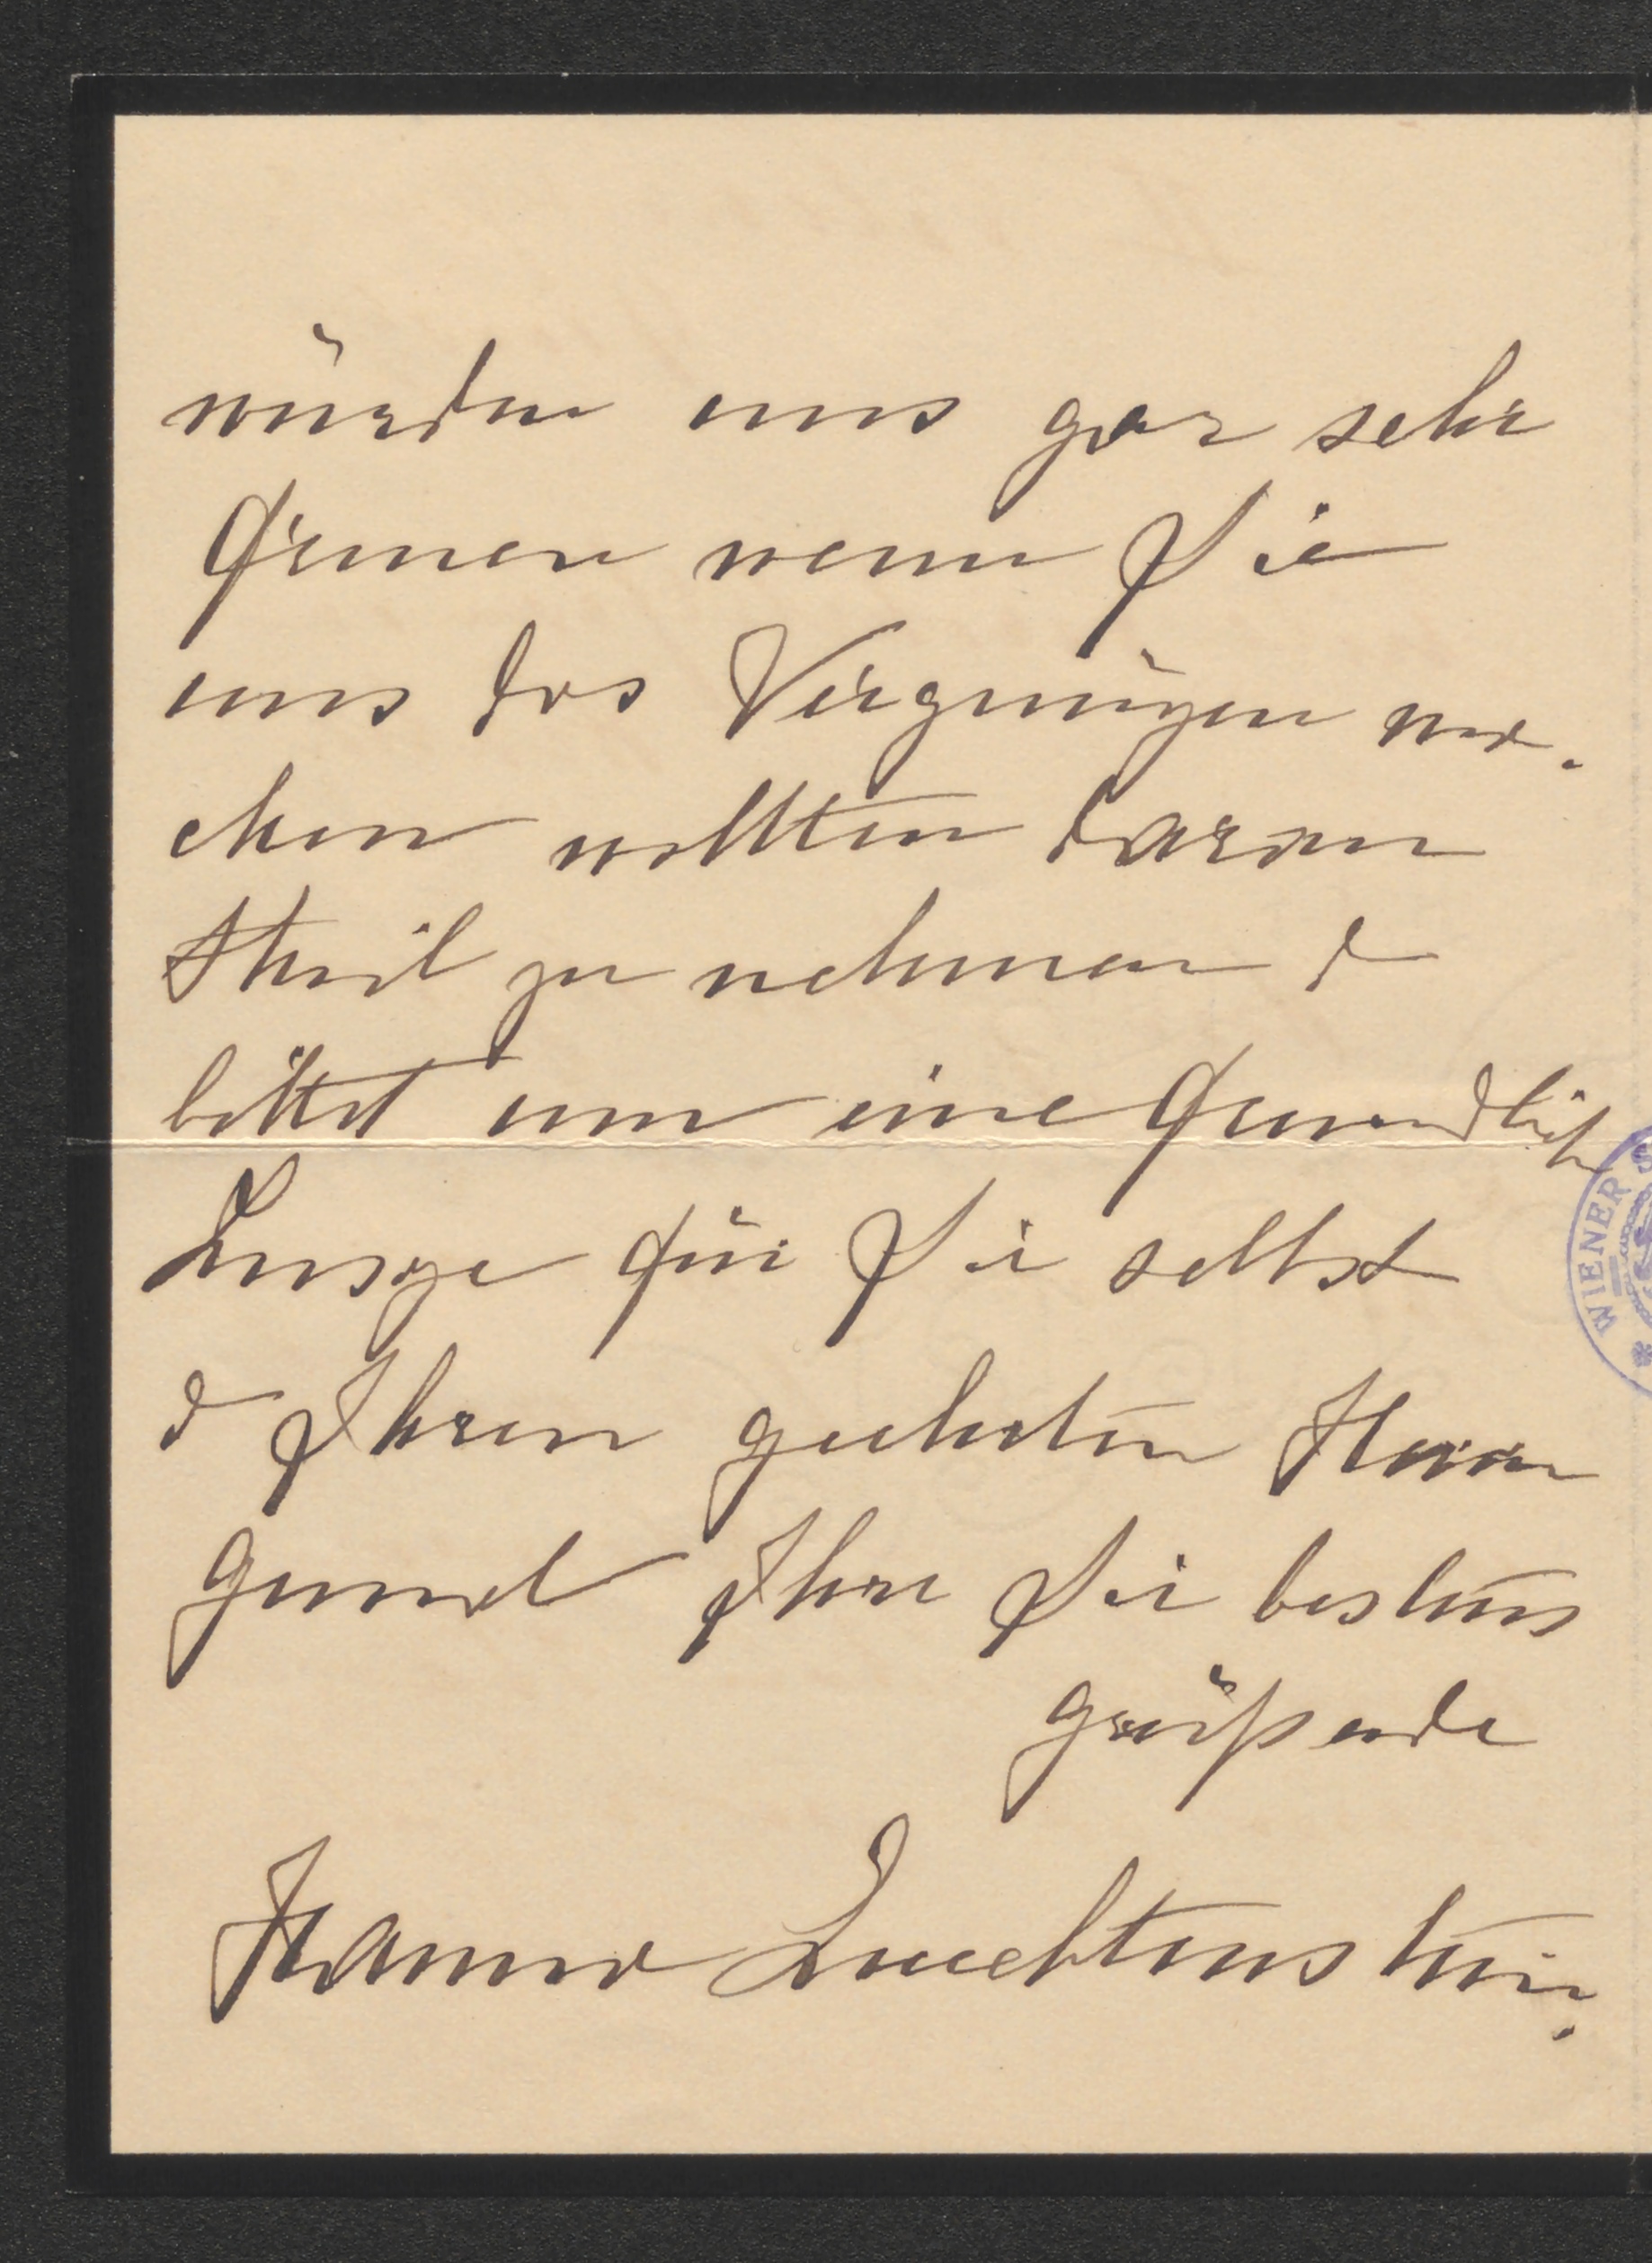 würden uns gar sehr
freuen wenn Sie
uns das Vergnügen ma-
chen wollten daran
Theil zu nehmen &
bittet um eine freundliche
Zusage für Sie selbst
& Ihren geehrten Herrn
Gemal Ihre Sie bestens
grüßende
Hanna Liechtenstein.
WIENER